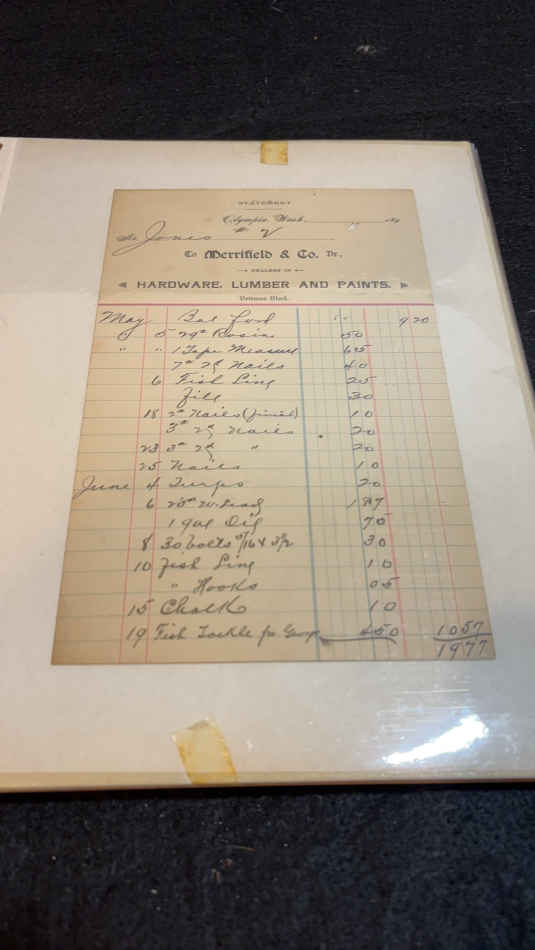 STATEMENT
Olympia, Wash. 189
Mr Jones # 2
To Merrifield & Co. Dr.
DEALERS IN
HARDWARE, LUMBER AND PAINTS.
May Bal Ford 9 20
5 Rosin 50
" " 1 Tape Measure 65
7# Nails 40
6 Fish Line 25
File 30
18 2# Nails (finish) 10
3# Nails 20
23 3# " 20
25 Nails 10
June 4 Turps 20
6 25# W. Lead 1 87
1 gal Oil 75
8 30 bolts 5/16 x 3 1/2 30
10 Fish Line 10
" Hooks 05
15 Chalk 10
19 Fish Tackle for 4 50 10 57
19 77